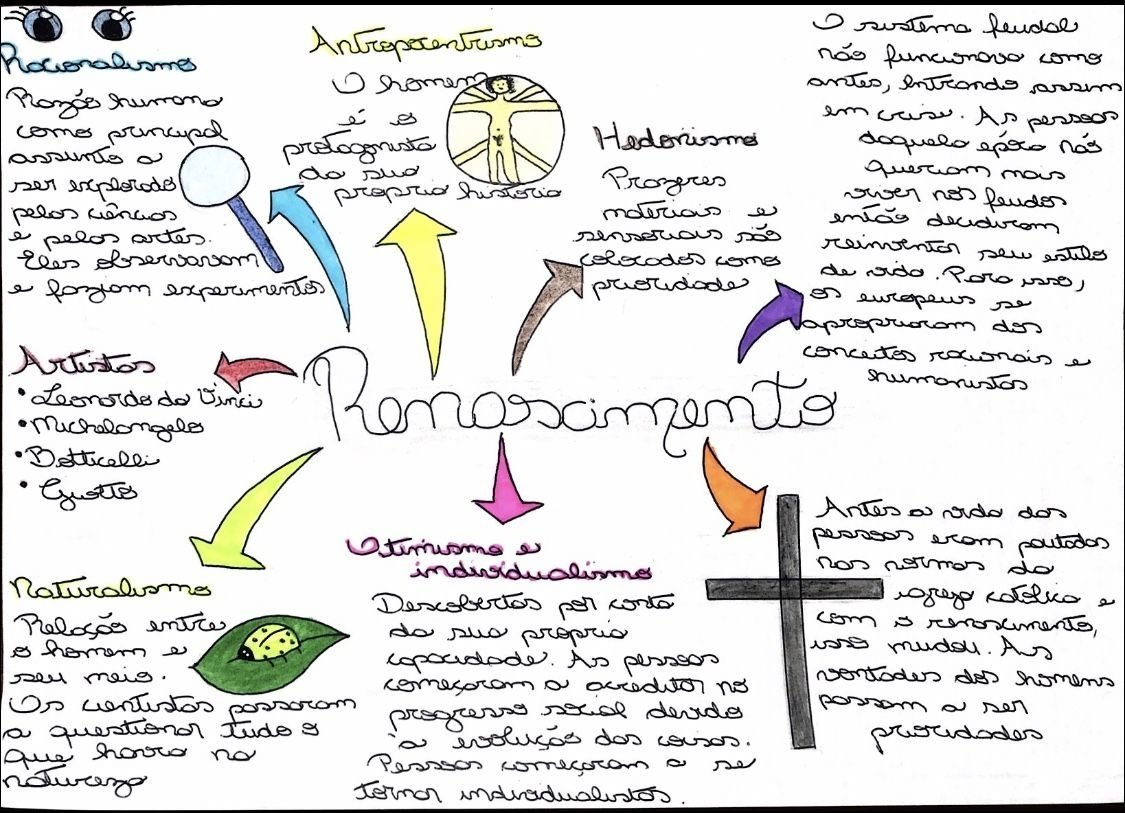 Racionalismo
Razão humana
como principal
assunto a
ser explorado
pelas ciências
e pelas artes.
Eles observavam
e faziam experimentos
Antropocentrismo
O homem
é o
protagonista
da sua
propria história
Hedonismo
Prazeres
materiais e
sensoriais são
colocados como
prioridade
O sistema feudal
não funcionava como
antes, entrando assim
em crise. As pessoas
daquela época não
queriam mais
viver nos feudos
então decidiram
reinventar seu estilo
de vida. Para isso,
os europeus se
apropriaram dos
conceitos racionais e
humanistas
Artistas
• Leonardo da Vinci
• Michelangelo
• Botticelli
• Giotto
Renascimento
Naturalismo
Relação entre
o homem e
seu meio.
Os cientistas passaram
a questionar tudo o
que havia na
natureza
Otimismo e
individualismo
Descobertas por conta
da sua própria
capacidade. As pessoas
começaram a acreditar no
progresso social devido
à evolução das coisas.
Pessoas começaram a se
tornar individualistas.
Antes a vida das
pessoas eram pautadas
nas normas da
igreja católica e
com o renascimento,
isso mudou. As
vontades dos homens
passam a ser
prioridades